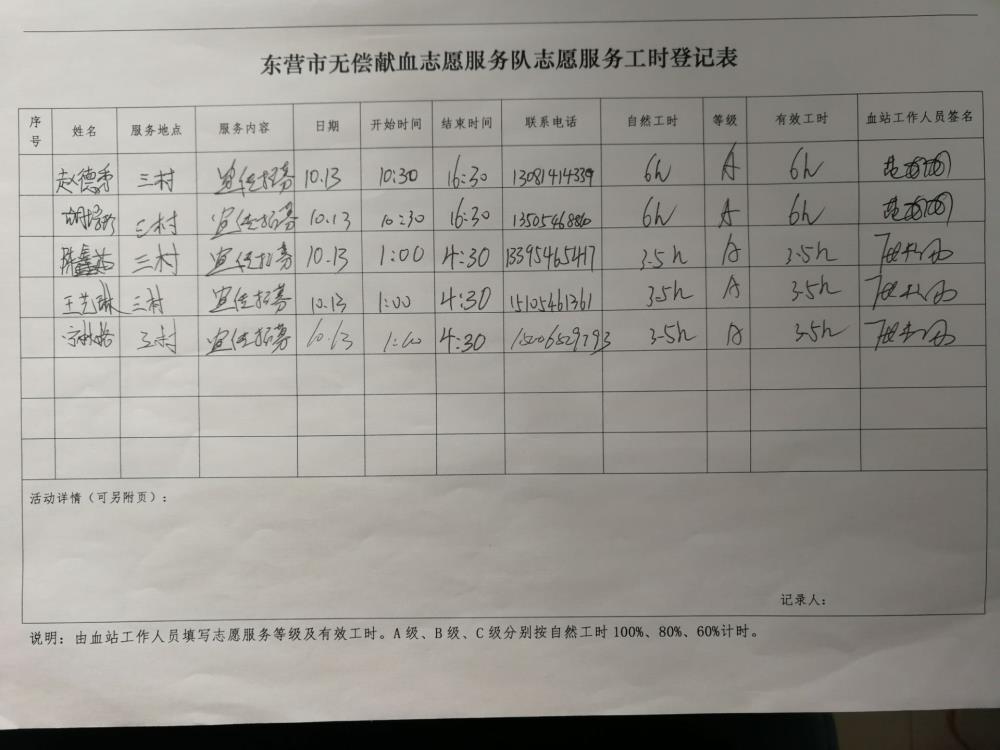 东营市无偿献血志愿服务队志愿服务工时登记表
序号 姓名 服务地点 服务内容 日期 开始时间 结束时间 联系电话 自然工时 等级 有效工时 血站工作人员签名
赵德秀 三村 宣传招募 10.13 10:30 16:30 13081414339 6h A 6h
三村 宣传招募 10.13 10:30 16:30 6h A 6h
三村 宣传招募 10.13 1:00 4:30 13395465417 3.5h A 3.5h
王艺琳 三村 宣传招募 10.13 1:00 4:30 15105461361 3.5h A 3.5h
三村 宣传招募 10.13 1:00 4:30 15206529793 3.5h A 3.5h
活动详情（可另附页）：
记录人：
说明：由血站工作人员填写志愿服务等级及有效工时。A 级、B 级、C 级分别按自然工时 100%、80%、60%计时。